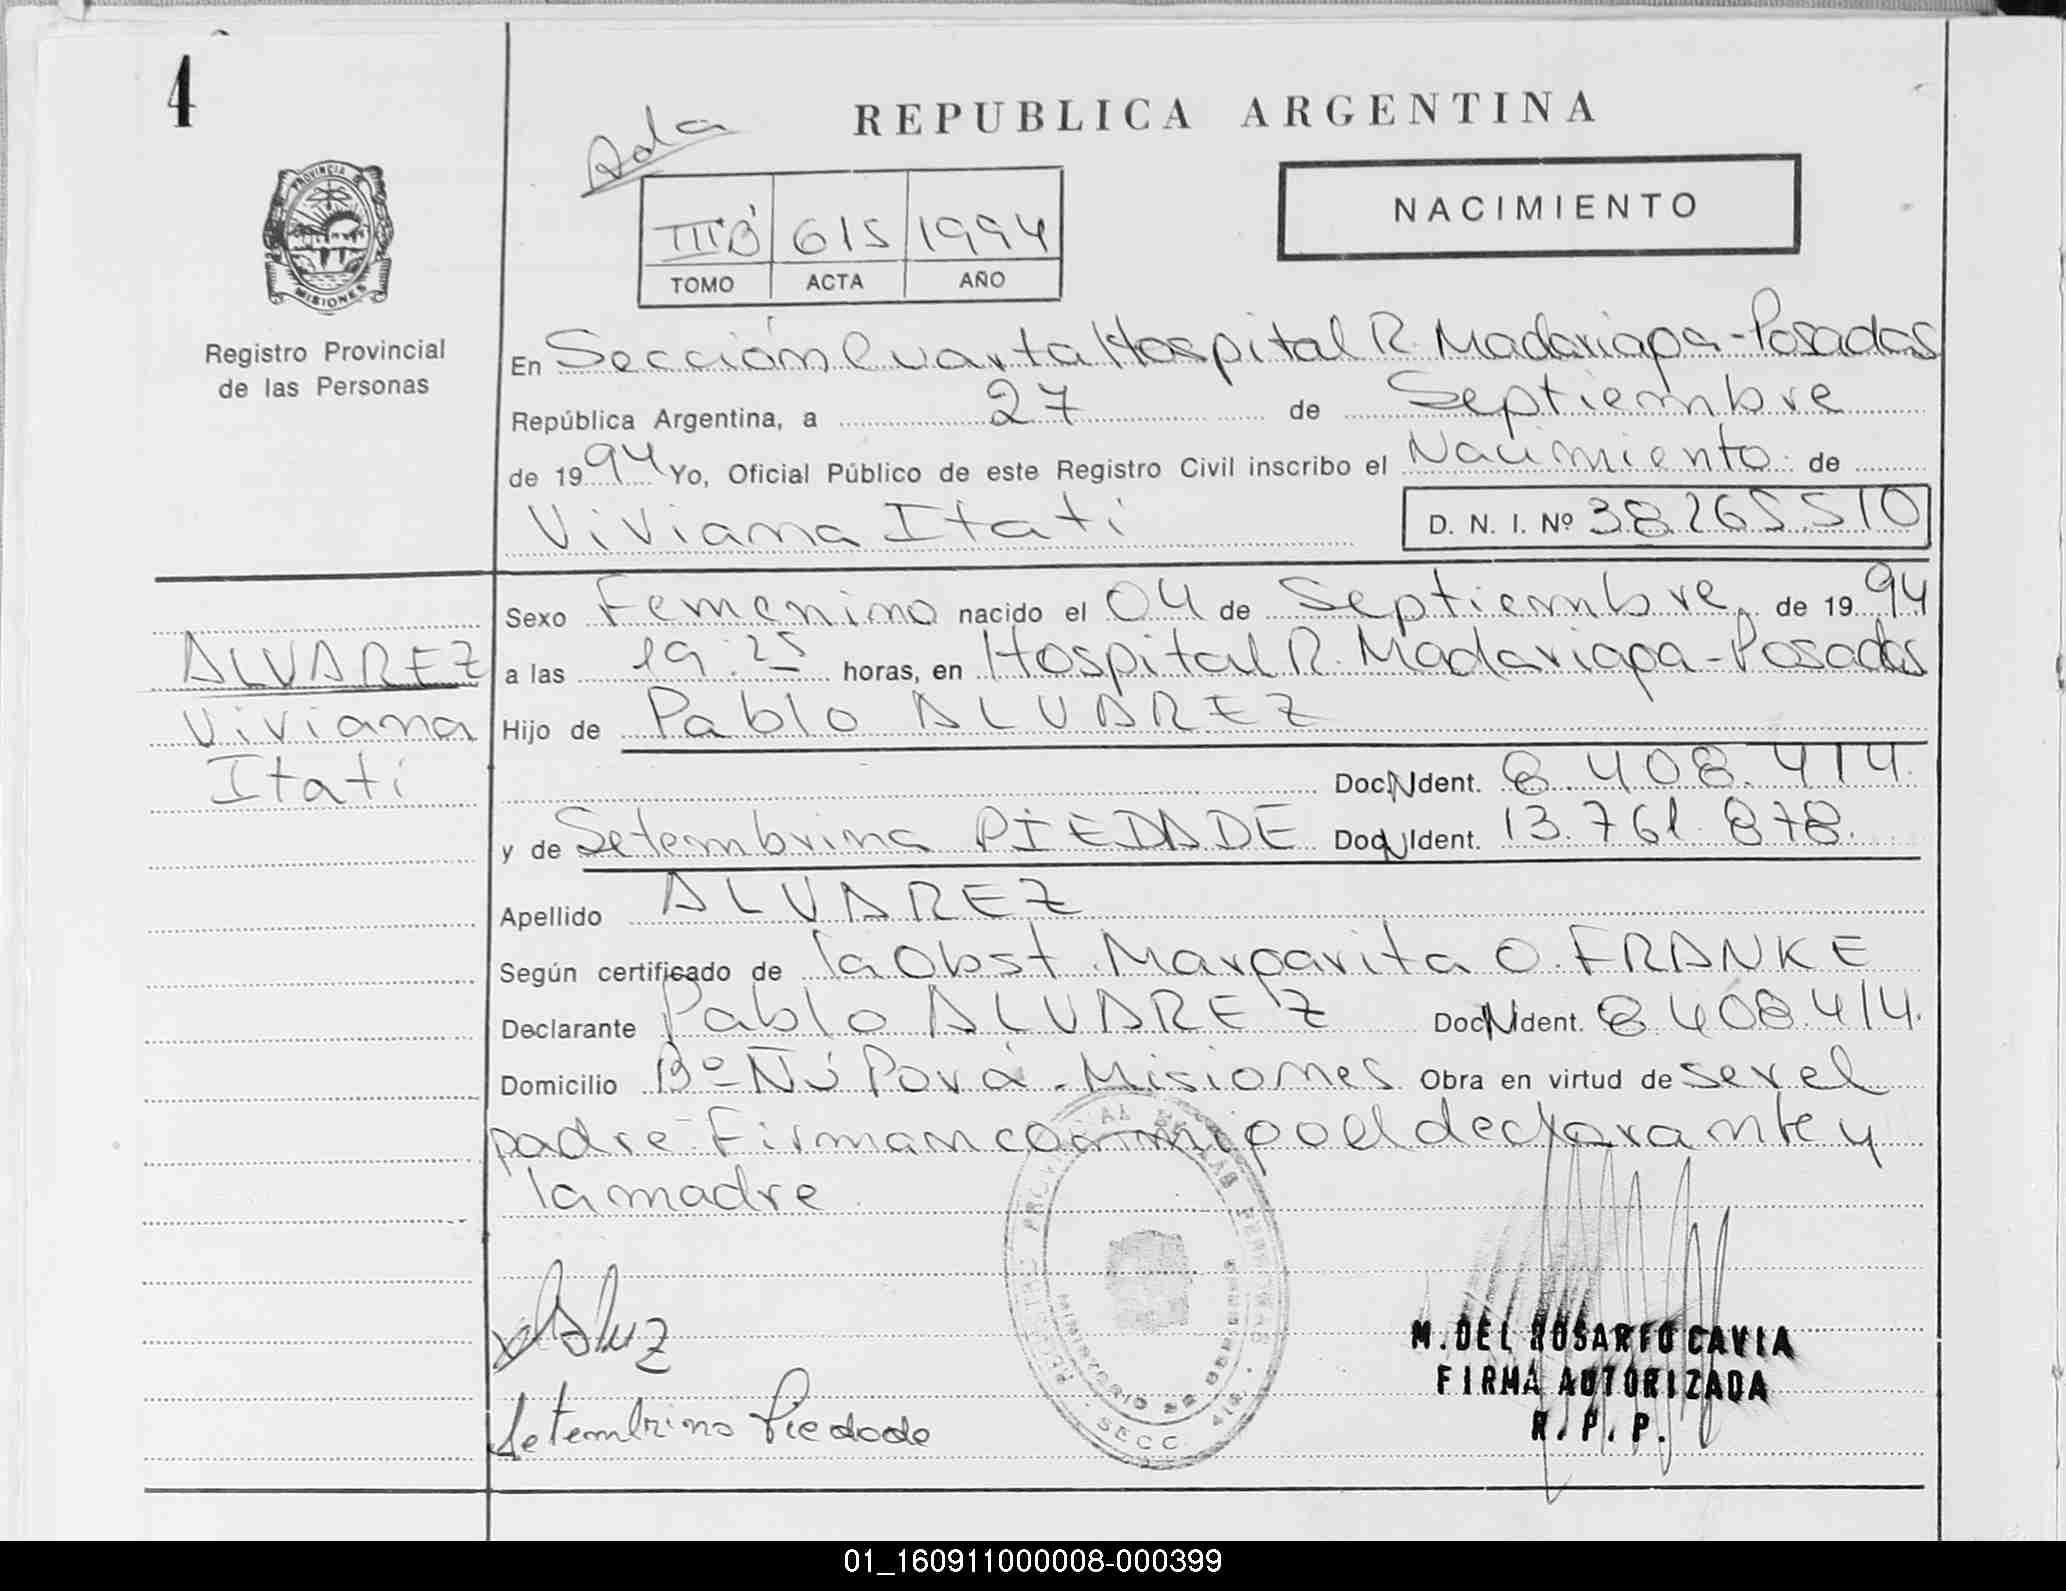 4
REPUBLICA ARGENTINA
Ada
NACIMIENTO
PROVINCIA
MISIONES
III"B" 615 1994
TOMO ACTA AÑO
Registro Provincial
de las Personas
En Sección Cuarta Hospital R. Madariaga - Posadas
República Argentina, a 27 de Septiembre
de 1994 Yo, Oficial Público de este Registro Civil inscribo el Nacimiento de
Viviana Itati D. N. I. Nº 38.265.510
Sexo Femenino nacido el 04 de Septiembre de 1994
ALVAREZ
a las 19:25 horas, en Hospital R. Madariaga - Posadas
Viviana
Hijo de Pablo ALVAREZ
Itati
Doc. Ident. 8.408.414.
y de Setembrina PIEDADE Doc. Ident. 13.761.878.
Apellido ALVAREZ
Según certificado de la Obst. Margarita O. FRANKE
Declarante Pablo ALVAREZ Doc. Ident. 8.408.414.
Domicilio Bº Ñú Porá - Misiones Obra en virtud de ser el
padre - Firman conmigo el declarante y
la madre
Setembrina Piedade
SECC.
M. DEL ROSARIO CAVIA
FIRMA AUTORIZADA
R. P. P.
01_160911000008-000399